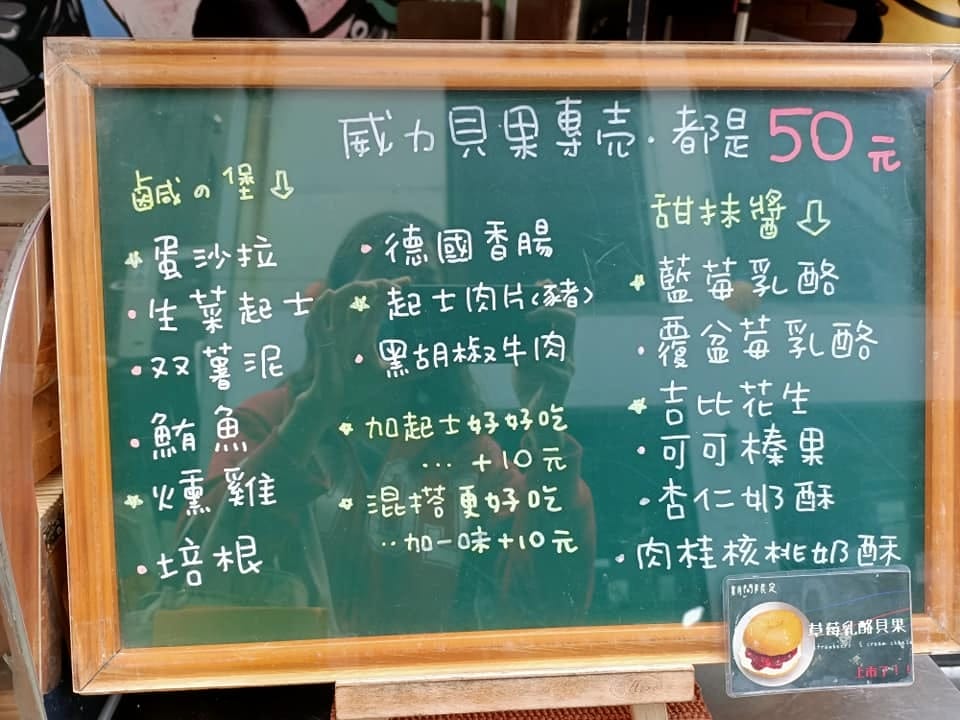 威力貝果專売·都是50元
鹹の堡⇩
★蛋沙拉
•生菜起士
•双薯泥
•鮪魚
★燻雞
•培根
•德國香腸
★起士肉片(豬)
•黑胡椒牛肉
★加起士好好吃
…+10元
★混搭更好吃
··加一味+10元
甜抹醬⇩
★藍莓乳酪
•覆盆莓乳酪
★吉比花生
•可可榛果
•杏仁奶酥
•肉桂核桃奶酥
期間限定
草莓乳酪貝果
上市了!!